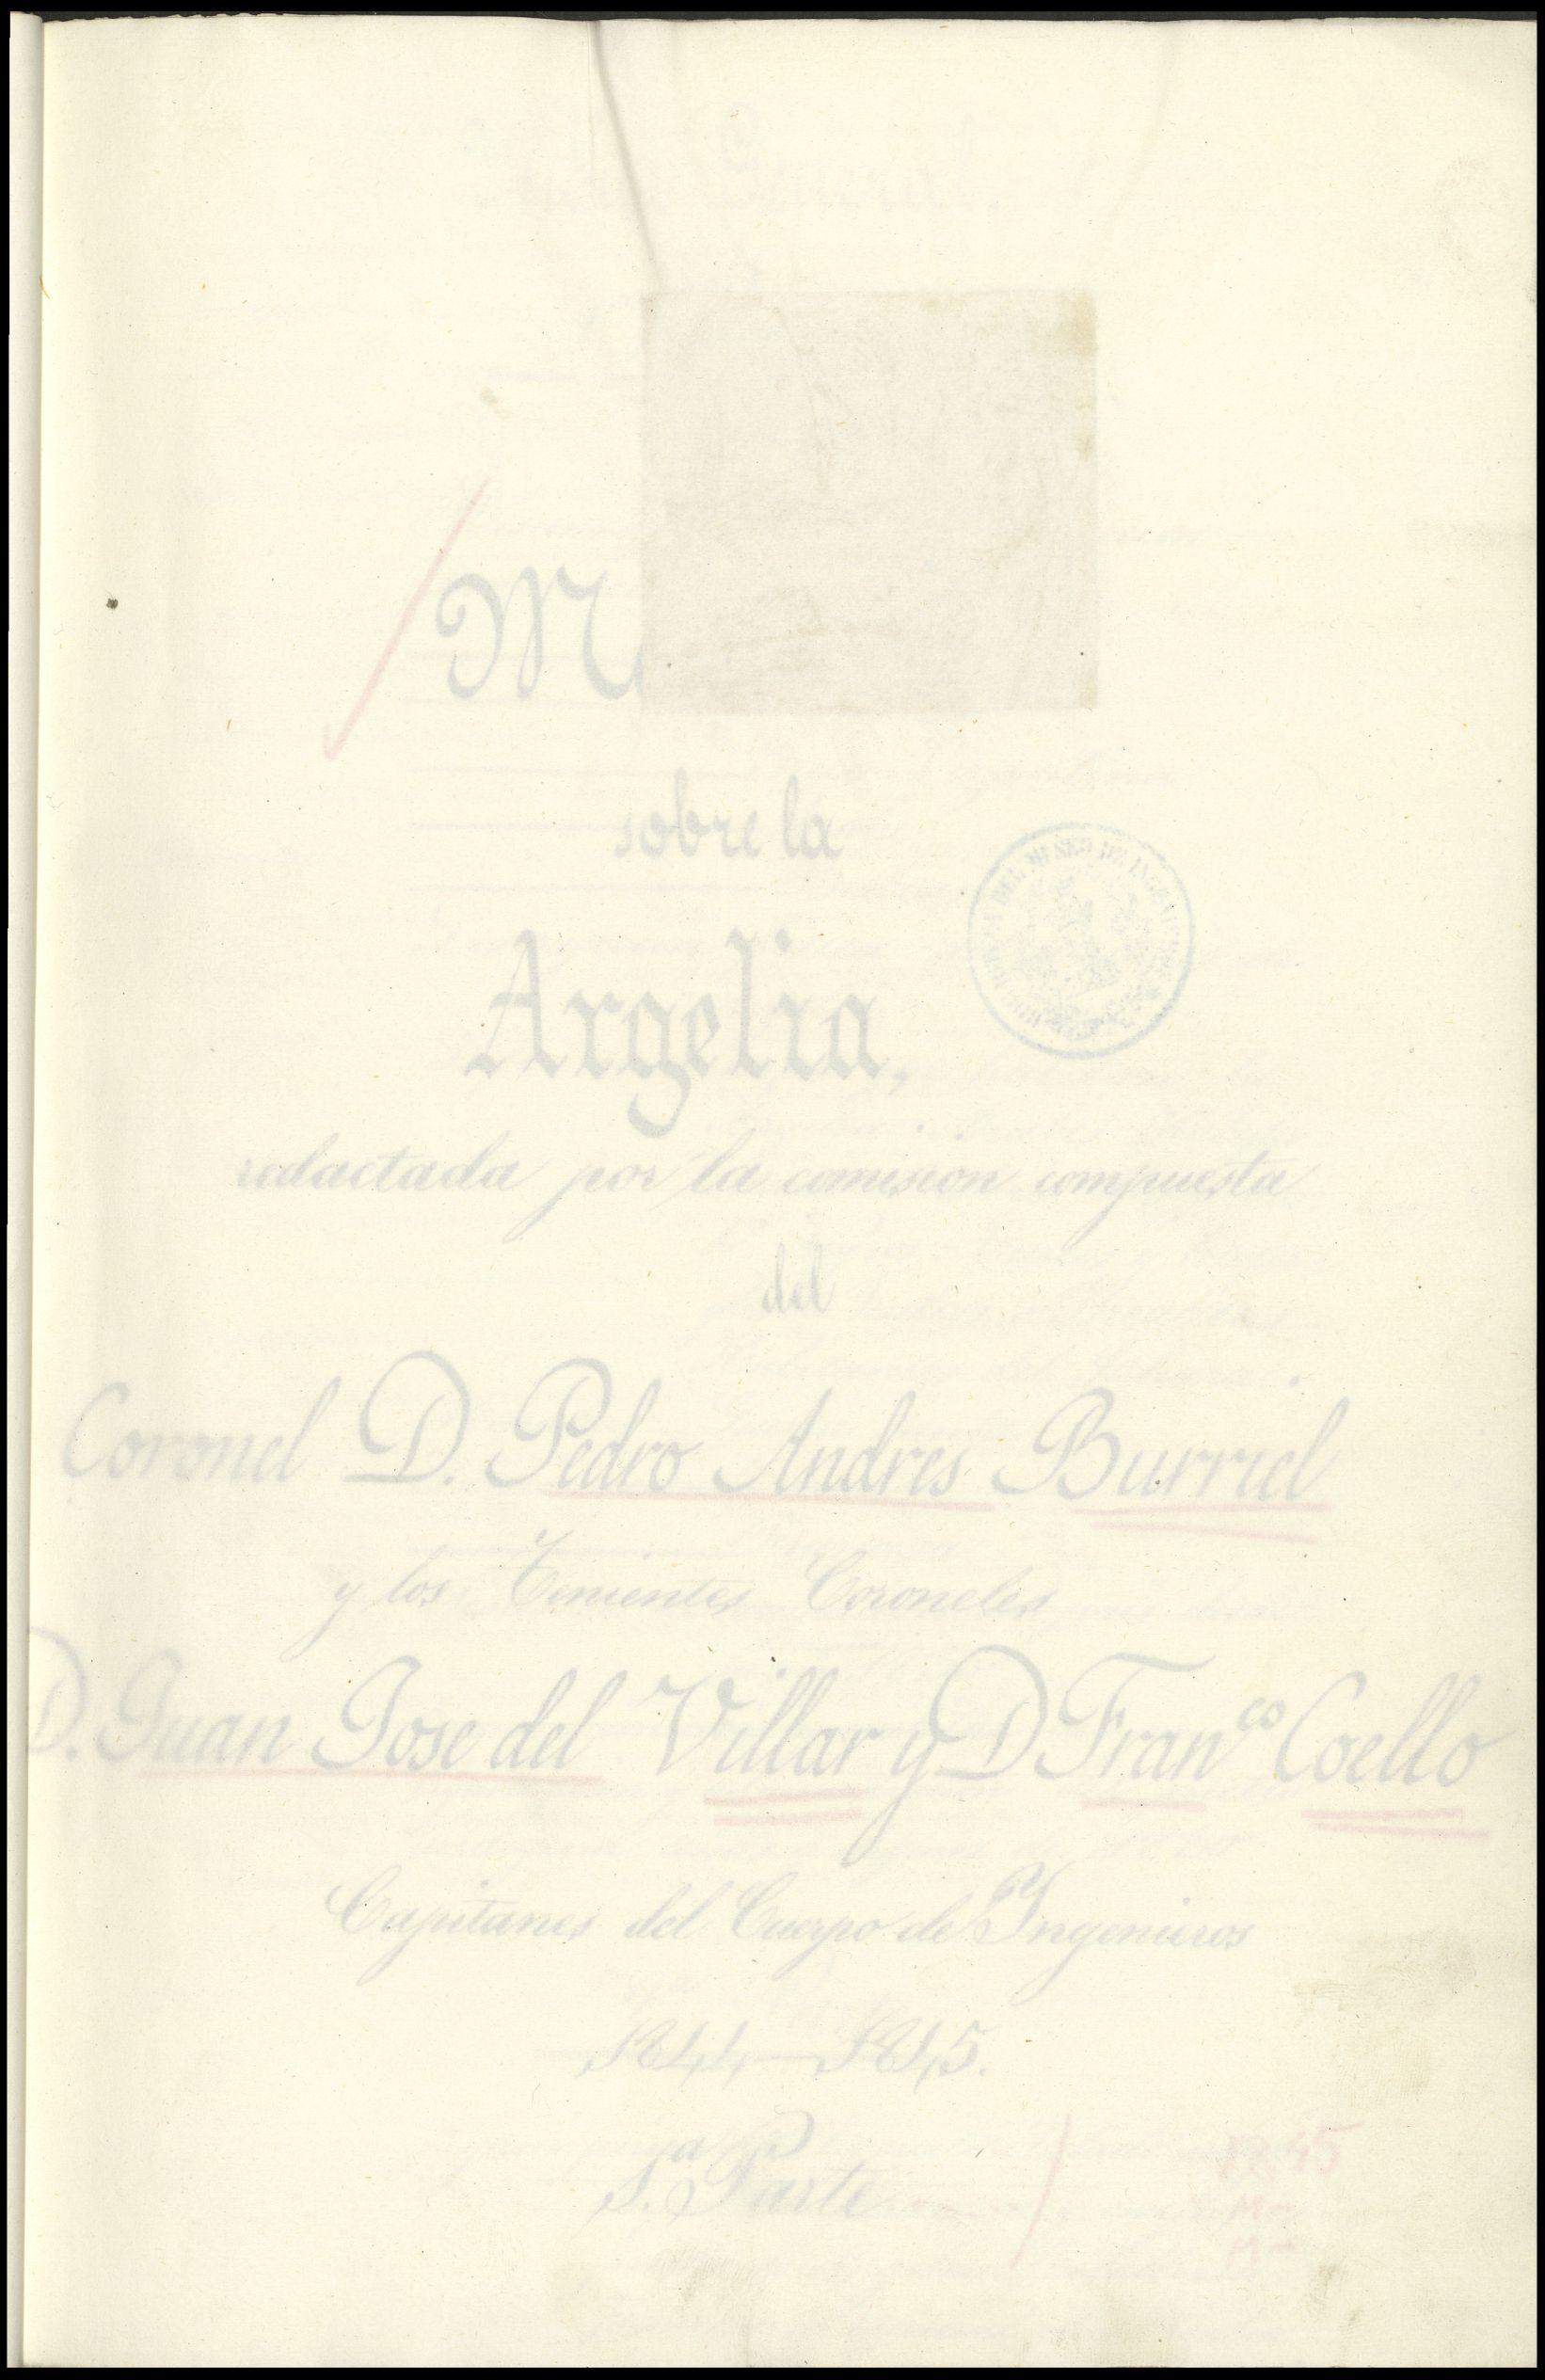 General
M
sobre la
Argelia,
redactada por la comision compuesta
del
Coronel D. Pedro Andres Burriel
y los Tenientes Coroneles
D. Juan Jose del Villar y D Fran.co Coello
Capitanes del Cuerpo de Yngenieros
1844–1845.
1.a Parte
1845
M-
M-
DEL MUSEO DE INGENIEROS